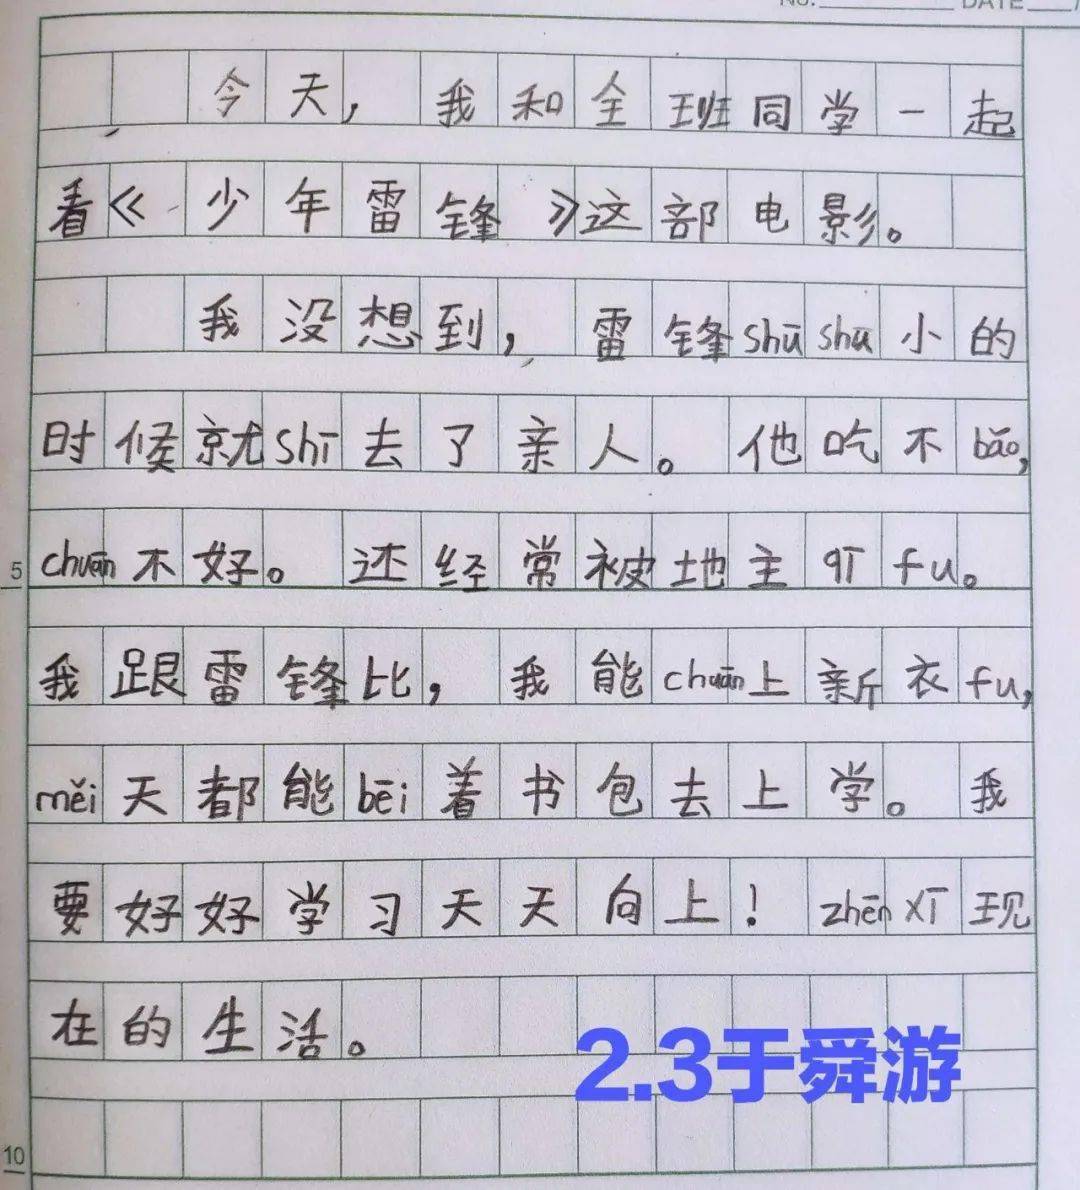 NO. DATE
今天，我和全班同学一起
看《少年雷锋》这部电影。
我没想到，雷锋shū shū小的
时候就shī去了亲人。他吃不bǎo，
5 chuān不好。还经常被地主qī fu。
我跟雷锋比，我能chuān上新衣fu，
měi天都能bēi着书包去上学。我
要好好学习天天向上！zhēn xī现
在的生活。
2.3于舜游
10